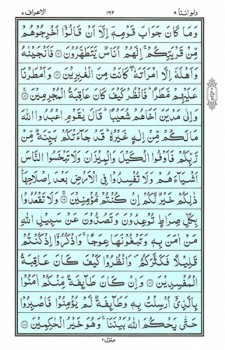 ولو اننا ٨ ١٩٢ الاعراف ٧
وَمَا كَانَ جَوَابَ قَوْمِهٖٓ اِلَّآ اَنْ قَالُوْٓا اَخْرِجُوْهُمْ
مِّنْ قَرْيَتِكُمْ ۚ اِنَّهُمْ اُنَاسٌ يَّتَطَهَّرُوْنَ ۝ فَاَنْجَيْنٰهُ
وَاَهْلَهٗٓ اِلَّا امْرَاَتَهٗ ۖ كَانَتْ مِنَ الْغٰبِرِيْنَ ۝ وَاَمْطَرْنَا
عَلَيْهِمْ مَّطَرًا ؕ فَانْظُرْ كَيْفَ كَانَ عَاقِبَةُ الْمُجْرِمِيْنَ ۝
وَاِلٰى مَدْيَنَ اَخَاهُمْ شُعَيْبًا ؕ قَالَ يٰقَوْمِ اعْبُدُوا اللّٰهَ
مَا لَكُمْ مِّنْ اِلٰهٍ غَيْرُهٗ ؕ قَدْ جَآءَتْكُمْ بَيِّنَةٌ مِّنْ
رَّبِّكُمْ فَاَوْفُوا الْكَيْلَ وَالْمِيْزَانَ وَلَا تَبْخَسُوا النَّاسَ
اَشْيَآءَهُمْ وَلَا تُفْسِدُوْا فِى الْاَرْضِ بَعْدَ اِصْلَاحِهَا ؕ
ذٰلِكُمْ خَيْرٌ لَّكُمْ اِنْ كُنْتُمْ مُّؤْمِنِيْنَ ۝ وَلَا تَقْعُدُوْا
بِكُلِّ صِرَاطٍ تُوْعِدُوْنَ وَتَصُدُّوْنَ عَنْ سَبِيْلِ اللّٰهِ
مَنْ اٰمَنَ بِهٖ وَتَبْغُوْنَهَا عِوَجًا ۚ وَاذْكُرُوْٓا اِذْ كُنْتُمْ
قَلِيْلًا فَكَثَّرَكُمْ ۪ وَانْظُرُوْا كَيْفَ كَانَ عَاقِبَةُ
الْمُفْسِدِيْنَ ۝ وَاِنْ كَانَ طَآئِفَةٌ مِّنْكُمْ اٰمَنُوْا
بِالَّذِىْٓ اُرْسِلْتُ بِهٖ وَطَآئِفَةٌ لَّمْ يُؤْمِنُوْا فَاصْبِرُوْا
حَتّٰى يَحْكُمَ اللّٰهُ بَيْنَنَا ۚ وَهُوَ خَيْرُ الْحٰكِمِيْنَ ۝
منزل ٢